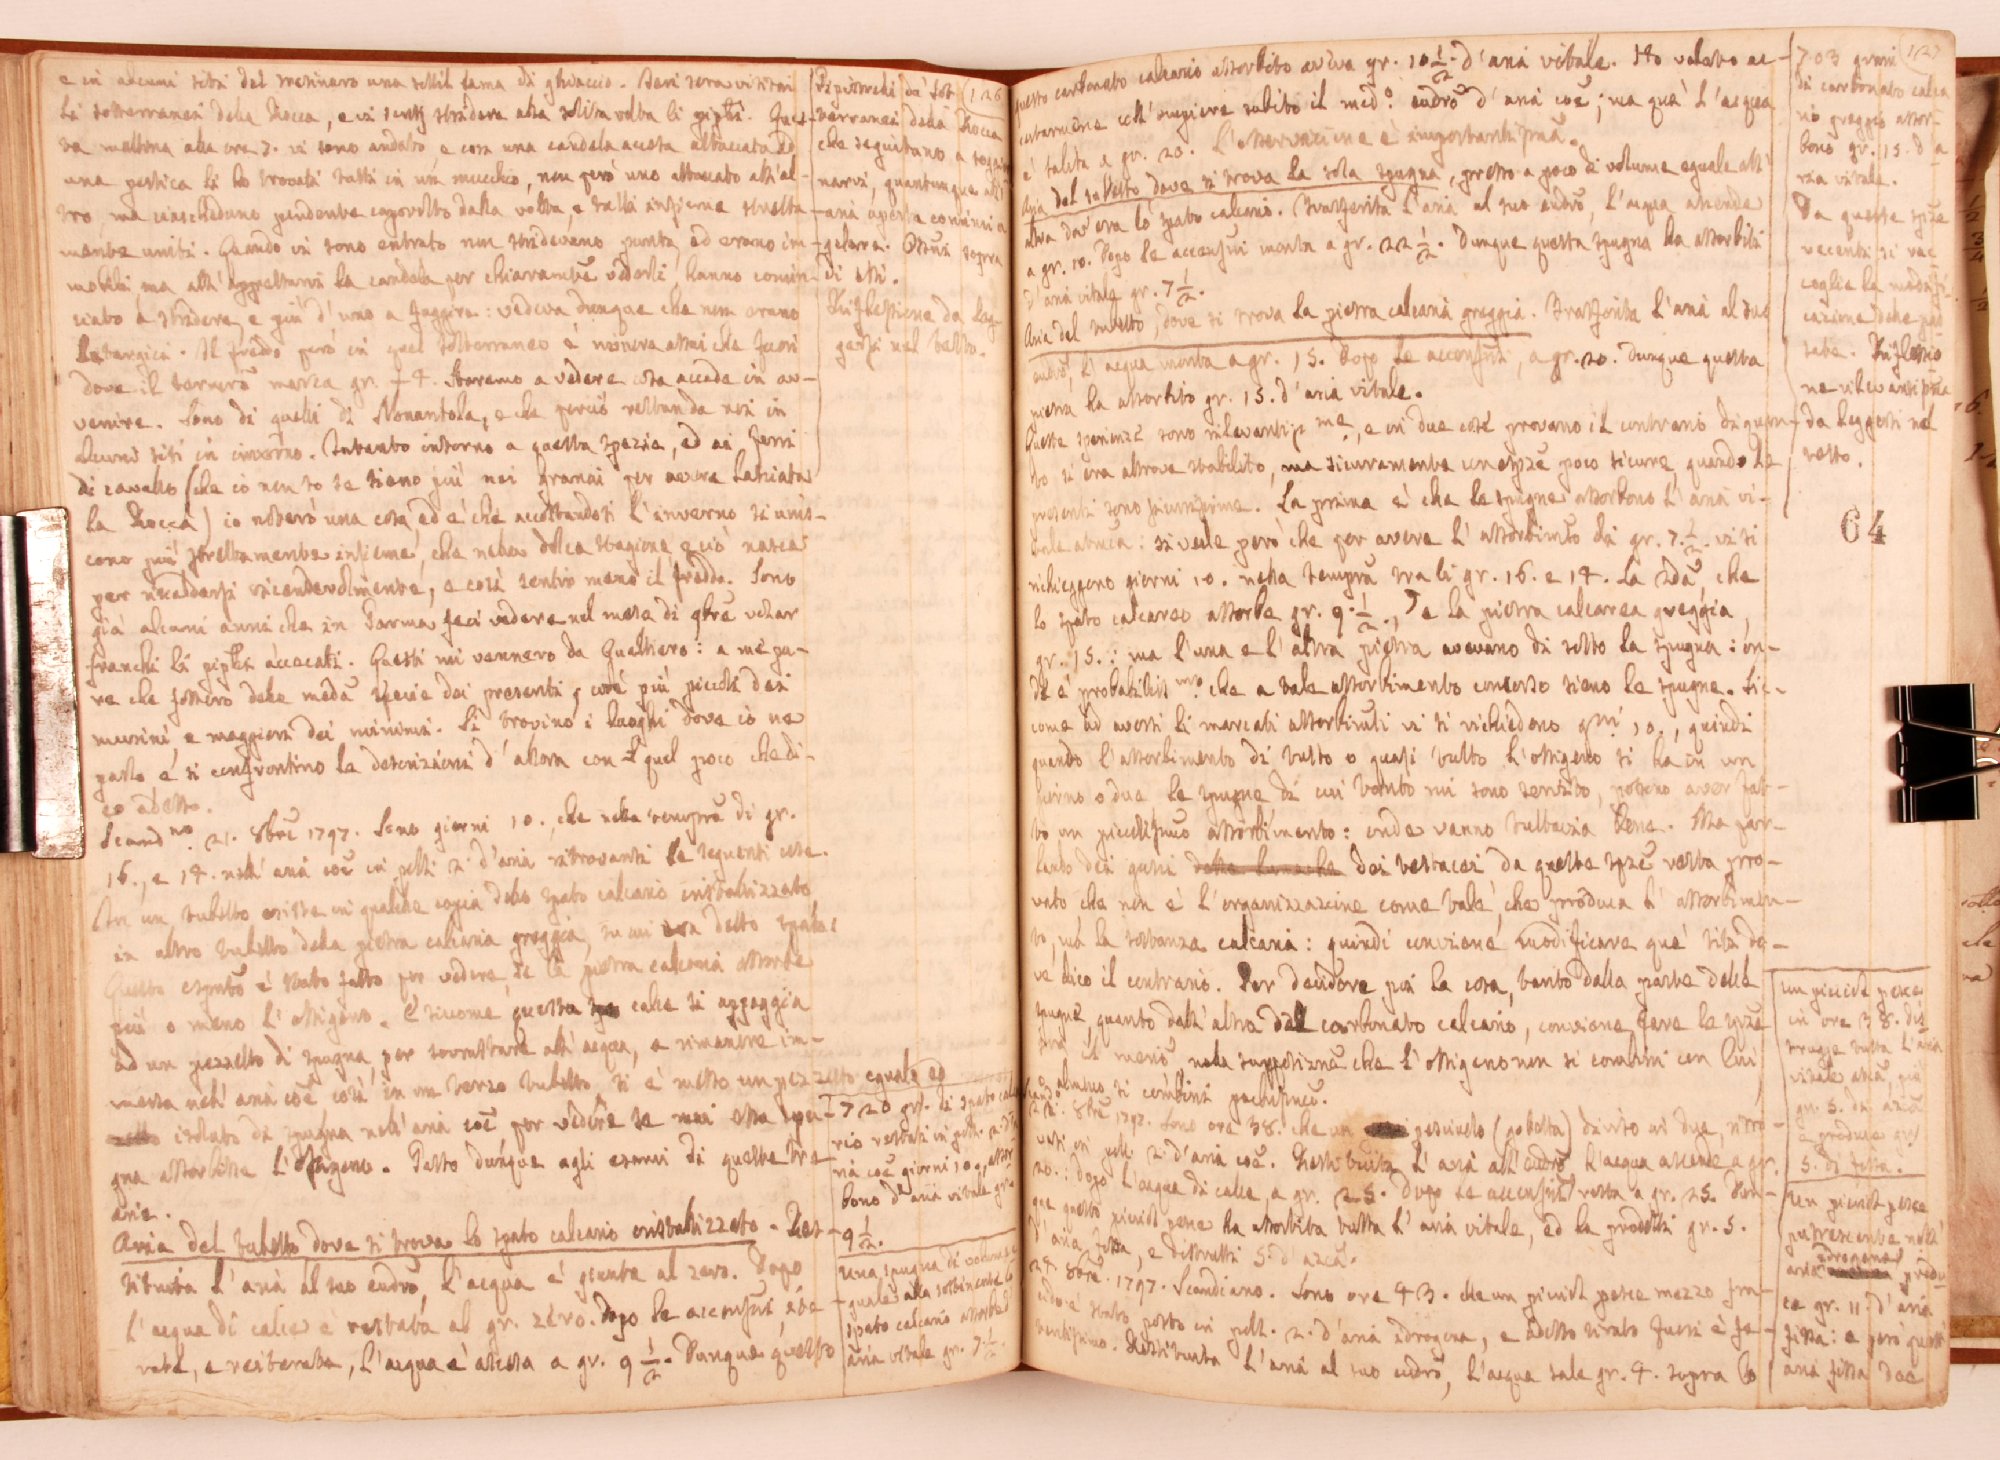 e in alcuni siti del
una sottil lama di ghiaccio. Ieri sera visitai
li sotterranei della Rocca, e vi sentij stridere alla solita volta li pipist.i
va mattina alle ore 7. vi sono andato e con una candela accesa attaccata ad
una pertica li ho trovati tutti in un mucchio, non però uno attaccato all'al-
tro, ma ciascheduno pendente capovolto dalla volta, e tutti insieme stretta-
mente uniti. Quando vi sono entrato non stridevano punto, ed erano im-
mobili ma all'appressarvi la candela per chiaramte vederli, hanno comin-
ciato a stridere, e più d'uno a fuggire: vedeva dunque che non erano
letargici. Il freddo però in quel sotterraneo è minore assai che fuori
dove il termro marca gr. + 4. Staremo a vedere cosa accade in av-
venire. Sono di quelli di Nonantola, e che perciò restan da noi in
alcuni siti in inverno. Intanto intorno a questa spezie, ed ai ferri
di cavallo (che io non so se sieno più nei granai per avere lasciata
la Rocca) io noterò una cosa, ed è che accostandosi l'inverno si unis-
cono più strettamente insieme, che nella dolce stagione, e ciò nasce
per riscaldarsi vicendevolmente, e così sentir meno il freddo. Sono
già alcuni anni che in Parma feci vedere nel mese di 9bre volar
franchi li pipist.i accecati. Questi mi vennero da Gualtiero: a me pa-
re che fossero della meda specie dei presenti, cioè più piccoli dei
murini, e maggiori dei minimi. Si trovino i luoghi dove io ne
parlo e si confrontino le descrizioni d'allora con quel poco che di-
co adesso.
Scandno. 21. 8bre 1797. Sono giorni 10., che nella tempra di gr.
16., e 14. nell'aria coe in poll. 2. d'aria ritrovansi le seguenti cose.
In un tubetto esiste in qualche copia dello spato calcario cristallizzato
in altro tubetto della pietra calcaria greggia, su cui era detto spato.
Questo esprto è stato fatto per vedere, se la pietra calcaria assorbe
più o meno l'ossigeno. E siccome questa calce si appoggia
ad un pezzetto di spugna, per sovrastare all'acqua, e rimanere im-
mersa nell'aria coe così in un terzo tubetto si è messo un pezzetto eguale ed
isolato di spugna nell'aria coe per vedere se mai essa spu-
gna assorbisse l'ossigeno. Passo dunque agli esami di queste tre
arie.
Aria del tubetto dove si trova lo spato calcario cristallizzato. Res-
tituita l'aria al suo eudro, l'acqua è giunta al zero. Dopo
l'acqua di calce è restata al gr. zéro. Dopo le accensni,
rate, e reiterate, l'acqua è ascesa a gr. 9 1/2. Dunque questo
Pipistrelli dei sot- 126
terranei della Rocca
che seguitano a
narvi, quantunque all'
aria aperta cominci a
gelare. Ossni sopra
di essi.
Riflessione da leg-
gersi nel testo.
720 gr. di spato calca-
rio restati in poll. 2. d'a
ria coe giorni 10., assor-
bono d'aria vitale gr.
9 1/2.
Una spugna di volume
guale alla sostenente lo
spato calcario assorbe d'
aria vitale gr. 7 1/2.
questo carbonato calcario assorbito aveva gr. 10 1/2. d'aria vitale. Ho voluto ac-
certarmene coll'empiere subito il medo. eudro d'aria coe; ma quà l'acqua
è salita a gr. 20. L'osservazione è importantissma.
Aria del tubetto dove si trova la sola spugna, presso a poco di volume eguale all'
altra dov'era lo spato calcario. Trasferita l'aria al suo eudro, l'acqua ascende
a gr. 10. Dopo le accensni monta a gr. 22 1/2. Dunque questa spugna ha assorbiti
d'aria vitale gr. 7 1/2.
Aria del tubetto, dove si trova la pietra calcaria greggia. Trasferita l'aria al suo
eudro, l'acqua monta a gr. 15. Dopo le accensni, a gr. 20. Dunque questa
pietra ha assorbito gr. 15. d'aria vitale.
Queste sperienze sono rilevantissme, e in due cose provano il contrario di quan-
to si era altrove stabilito, ma sicuramente con espze poco sicure, quando le
presenti sono sicurissime. La prima è che le spugne assorbono l'aria vi-
tale atmca: si vede però che per avere l'assorbimto di gr. 7. 1/2. vi si
richieggono giorni 10. nella tempra tra li gr. 16. e 14. La 2da, che
lo spato calcareo assorbe gr. 9. 1/2., e la pietra calcarea greggia,
gr. 15.: ma l'una e l'altra pietra avevano di sotto la spugna: on-
de è probabilissmo che a tale assorbimento concorso sieno le spugne. Sic-
come ad aversi li marcati assorbimti vi si richiedono grni 10., quindi
quando l'assorbimento di tutto o quasi tutto l'ossigeno si ha in un
giorno o due le spugne di cui tanto mi sono servito, possono aver fat-
to un piccolissmo assorbimento: onde vanno tuttavia bene. Ma par-
lando dei gusci delle lumache dei testacei da queste espze resta pro-
vato che non è l'organizzazione come tale, che produca l'assorbimen-
to, ma la sostanza calcaria: quindi conviene modificare que' siti do-
ve dico il contrario. Per decidere poi la cosa, tanto dalla parte delle
spugne, quanto dall'altra del carbonato calcario, conviene fare le spze
nella supposizne che l'ossigeno non si combini con lui,
o almeno si combini pochissmo.
8bre 1797. Sono ore 38. che un pesciuolo (gobetta) diviso in due, ritro-
vasi in poll. 2. d'aria coe. Restituita l'aria all'eudro, l'acqua ascende a gr.
20.: dopo l'acqua di calce, a gr. 25. Dopo le accensni resta a gr. 25. Dun-
que questo picciol pesce ha assorbita tutta l'aria vitale, ed ha prodotti gr. 5.
d'aria fissa, e distrutti 5. d'azca.
24. 8bre. 1797. Scandiano. Sono ore 43. che un picciol pesce mezzo fra-
cido è stato posto in poll. 2. d'aria idrogena, e adesso tirato fuori è fe-
tentissimo. Restituita l'aria al suo eudro, l'acqua sale gr. 4. sopra lo
703 grani 127
di carbonato calca
rio greggio assor-
bono gr. 15. d'a
ria vitale.
Da queste spze
recenti si rac
coglie la modifi-
cazione delle pas
sate. Riflessio
ne rilevantissma
da leggersi nel
testo.
64
Un picciol pesce
in ore 38. dis
trugge tutta l'aria
vitale atmca, più
gr. 5. di azca
e produce gr.
5. di fissa.
Un picciol pesce
putrescente nell'
aria idrogena produ
ce gr. 11. d'aria
fissa: e però quest'
aria fissa dee